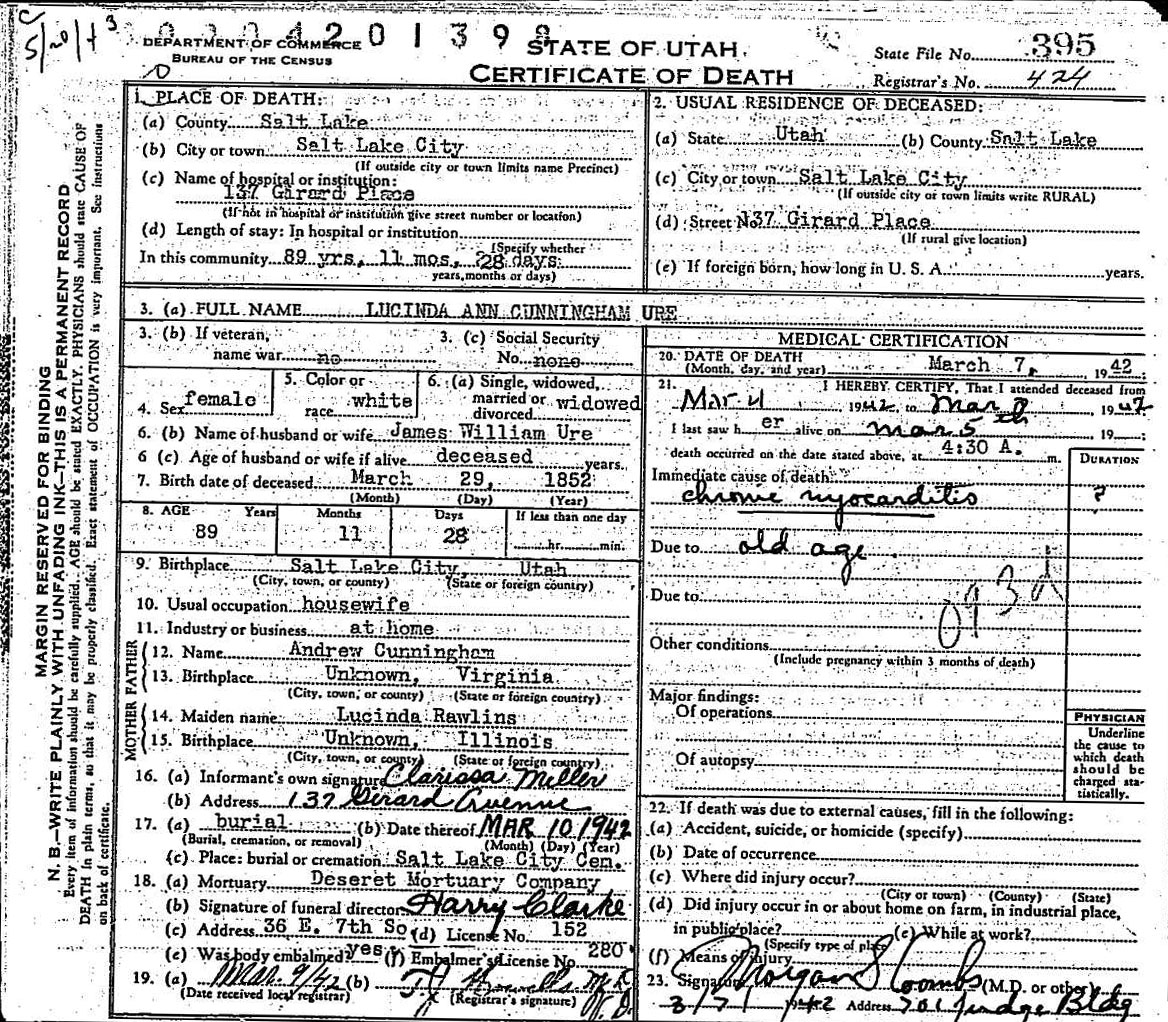 C
5/20/43
0 0 0 4 2 0 1 3 9 8
DEPARTMENT OF COMMERCE
BUREAU OF THE CENSUS
STATE OF UTAH
CERTIFICATE OF DEATH
State File No. 395
Registrar's No. 424
MARGIN RESERVED FOR BINDING
N. B.—WRITE PLAINLY WITH UNFADING INK—THIS IS A PERMANENT RECORD
Every item of information should be carefully supplied. AGE should be stated EXACTLY. PHYSICIANS should state CAUSE OF
DEATH in plain terms, so that it may be properly classified. Exact statement of OCCUPATION is very important. See instructions
on back of certificate.
1. PLACE OF DEATH:
(a) County Salt Lake
(b) City or town Salt Lake City
(If outside city or town limits name Precinct)
(c) Name of hospital or institution:
137 Girard Place
(If not in hospital or institution give street number or location)
(d) Length of stay: In hospital or institution
(Specify whether
In this community 89 yrs, 11 mos, 28 days
years, months or days)
2. USUAL RESIDENCE OF DECEASED:
(a) State Utah (b) County Salt Lake
(c) City or town Salt Lake City
(If outside city or town limits write RURAL)
(d) Street No 137 Girard Place
(If rural give location)
(e) If foreign born, how long in U. S. A. years.
3. (a) FULL NAME LUCINDA ANN CUNNINGHAM URE
3. (b) If veteran, name war no
3. (c) Social Security No. none
4. Sex female
5. Color or race white
6. (a) Single, widowed, married or divorced widowed
6. (b) Name of husband or wife James William Ure
6 (c) Age of husband or wife if alive deceased years.
7. Birth date of deceased March 29, 1852
(Month) (Day) (Year)
8. AGE Years Months Days If less than one day
89 11 28 hr. min.
9. Birthplace Salt Lake City, Utah
(City, town, or county) (State or foreign country)
10. Usual occupation housewife
11. Industry or business at home
FATHER
12. Name Andrew Cunningham
13. Birthplace Unknown, Virginia
(City, town, or county) (State or foreign country)
MOTHER
14. Maiden name Lucinda Rawlins
15. Birthplace Unknown, Illinois
(City, town, or county) (State or foreign country)
16. (a) Informant's own signature Clarissa Miller
(b) Address 137 Girard Avenue
17. (a) burial (b) Date thereof MAR 10 1942
(Burial, cremation, or removal) (Month) (Day) (Year)
(c) Place: burial or cremation Salt Lake City Cem.
18. (a) Mortuary Deseret Mortuary Company
(b) Signature of funeral director Harry Clarke
(c) Address 36 E. 7th So (d) License No. 152
(e) Was body embalmed? yes (f) Embalmer's License No 280
19. (a) Mar. 9/42 (b)
(Date received local registrar) (Registrar's signature)
MEDICAL CERTIFICATION
20. DATE OF DEATH March 7, 1942
(Month, day, and year)
21. I HEREBY CERTIFY, That I attended deceased from
Mar 4 1942, to Mar 1942
I last saw her alive on Mar 5th 19
death occurred on the date stated above, at 4:30 A. m.
DURATION
Immediate cause of death:
chronic myocarditis ?
Due to old age
Due to
093d
Other conditions
(Include pregnancy within 3 months of death)
Major findings:
Of operations
Of autopsy
PHYSICIAN
Underline
the cause to
which death
should be
charged sta-
tistically.
22. If death was due to external causes, fill in the following:
(a) Accident, suicide, or homicide (specify)
(b) Date of occurrence
(c) Where did injury occur?
(City or town) (County) (State)
(d) Did injury occur in or about home on farm, in industrial place,
in public place? (e) While at work?
(Specify type of place)
(f) Means of injury
23. Signature Morgan S Coombs (M.D. or other)
3/7/1942 Address 701 Judge Bldg